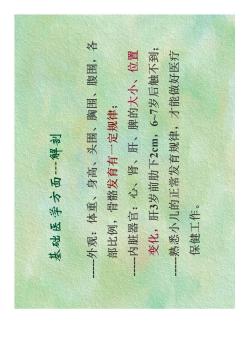 基础医学方面---解剖
-----外观：体重、身高、头围、胸围、腹围，各
部比例，骨骼发育有一定规律；
-----内脏器官：心、肾、肝、脾的大小、位置
变化，肝3岁前肋下2cm，6~7岁后触不到；
-----熟悉小儿的正常发育规律，才能做好医疗
保健工作。